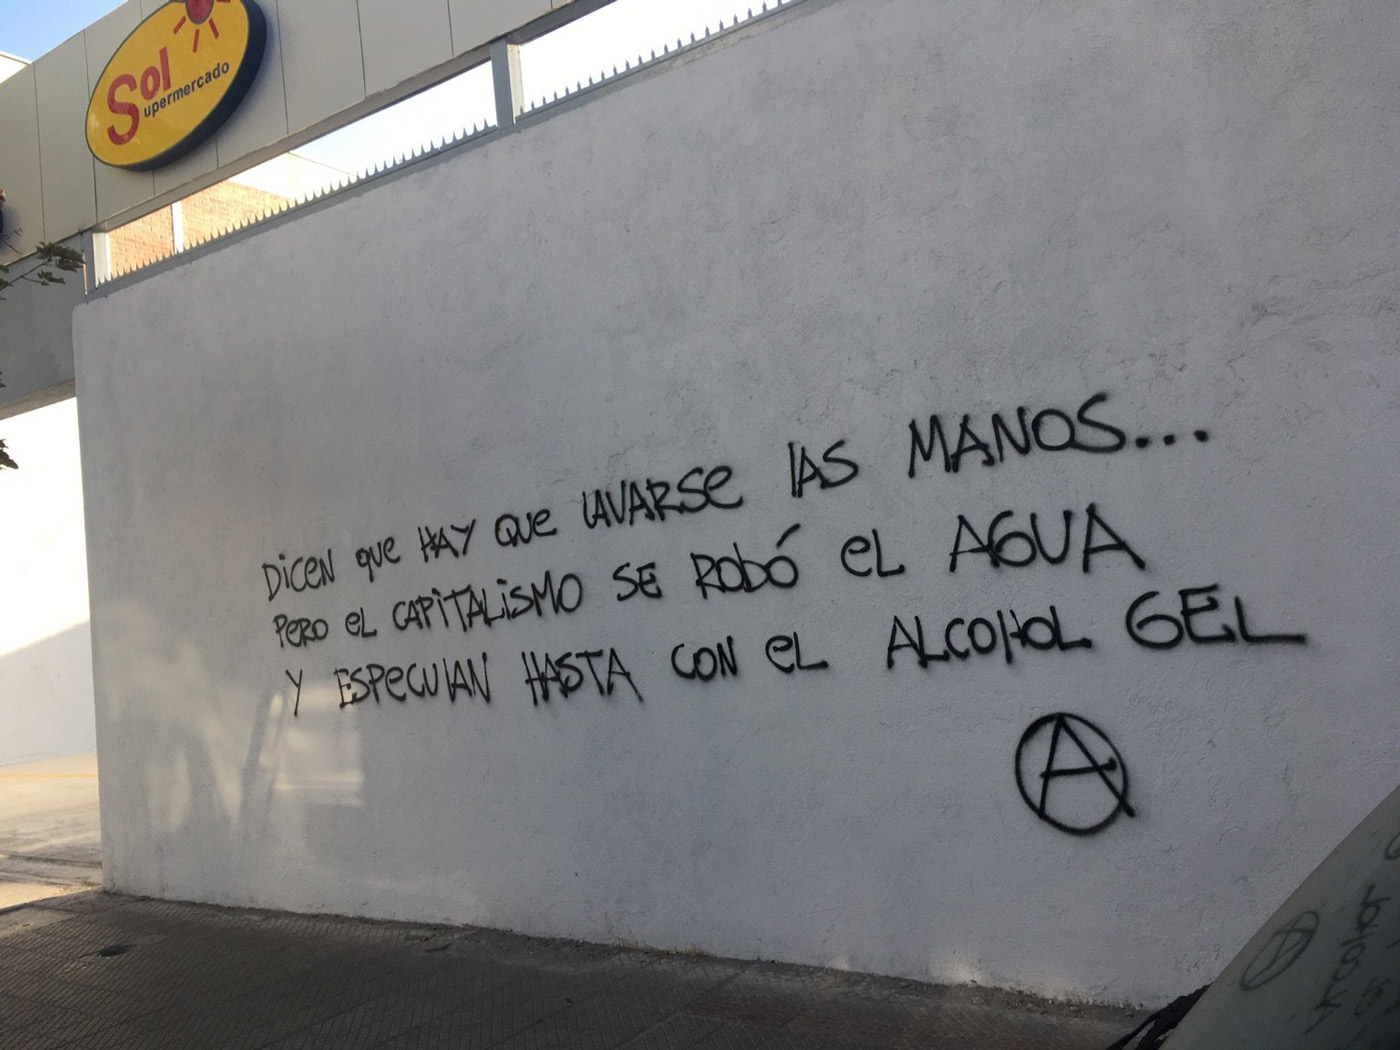 Sol
upermercado
DiCEN que HAY QUE LAVARSE LAS MANOS...
PERO EL CAPiTALiSMO SE ROBÓ EL AGUA
Y ESPECULAN HASTA CON EL ALCOHOL GEL
A
A